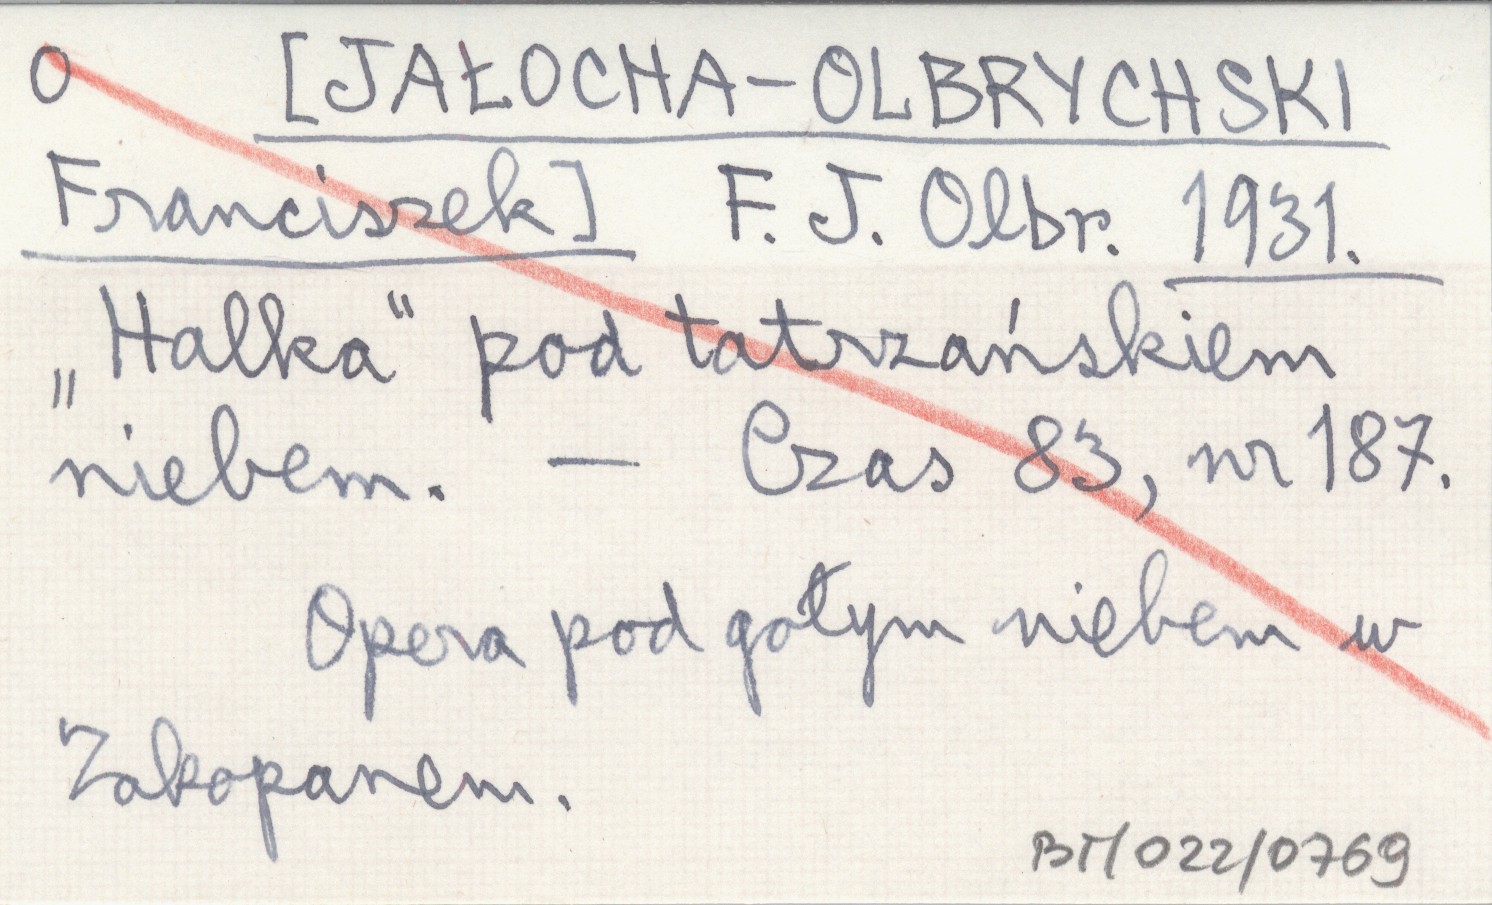 O [JAŁOCHA-OLBRYCHSKI
Franciszek] F. J. Olbr. 1931.
„Halka“ pod tatrzańskiem
niebem. — Czas 83, nr 187.
Opera pod gołym niebem w
Zakopanem.
BM/022/0769